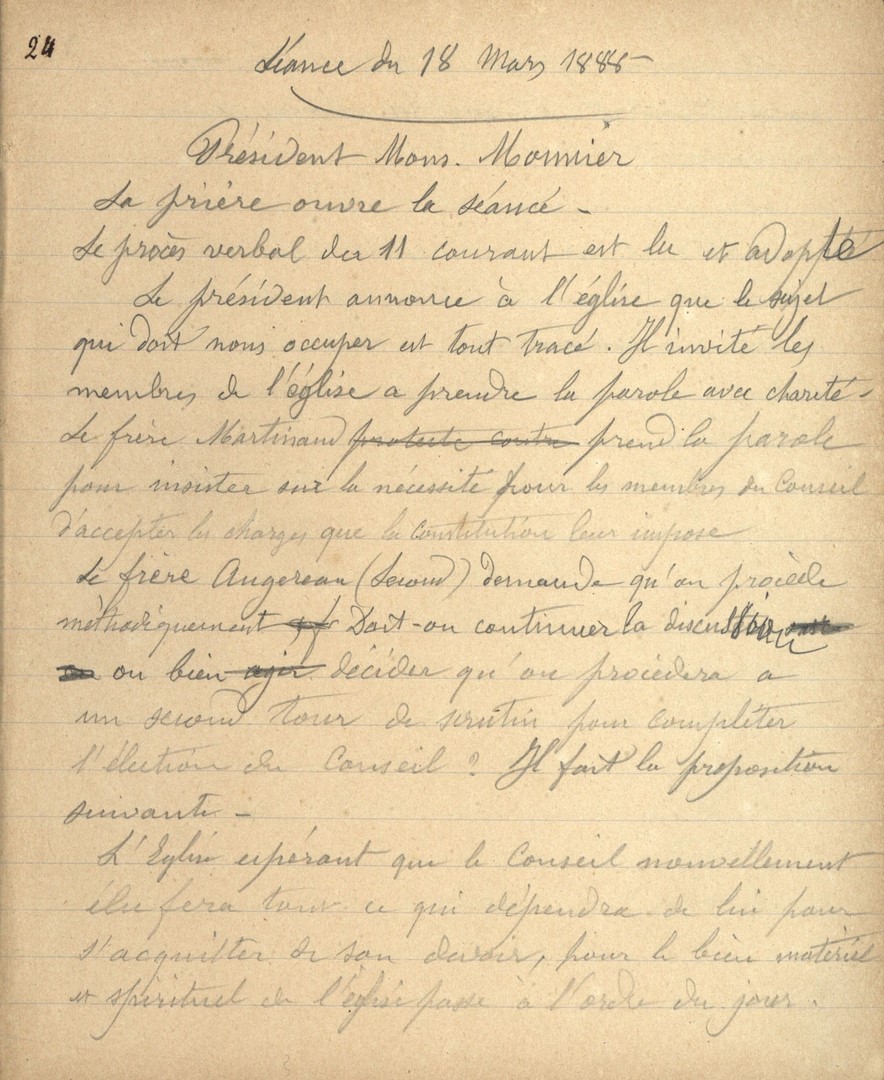 24
Séance du 18 Mars 1885
Président Mons. Monnier
La prière ouvre la séance -
Le procès verbal du 11 courant est lu et adopté
Le président annonce à l'église que le sujet
qui doit nous occuper est tout tracé. Il invite les
membres de l'église a prendre la parole avec charité -
Le frère Martinaud proteste contre prend la parole
pour insister sur la nécessité pour les membres du Conseil
d'accepter les charges que la Constitution leur impose
Le frère Augereau (Second) demande qu'on procède
méthodiquement Doit-on continuer la discussion
ou bien agir décider qu'on procèdera a
un second tour de scrutin pour compléter
l'élection du Conseil ? Il fait la proposition
suivante -
L'Eglise espérant que le Conseil nouvellement
élu fera tout ce qui dépendra de lui pour
s'acquitter de son devoir, pour le bien matériel
et spirituel de l'église passe à l'ordre du jour.